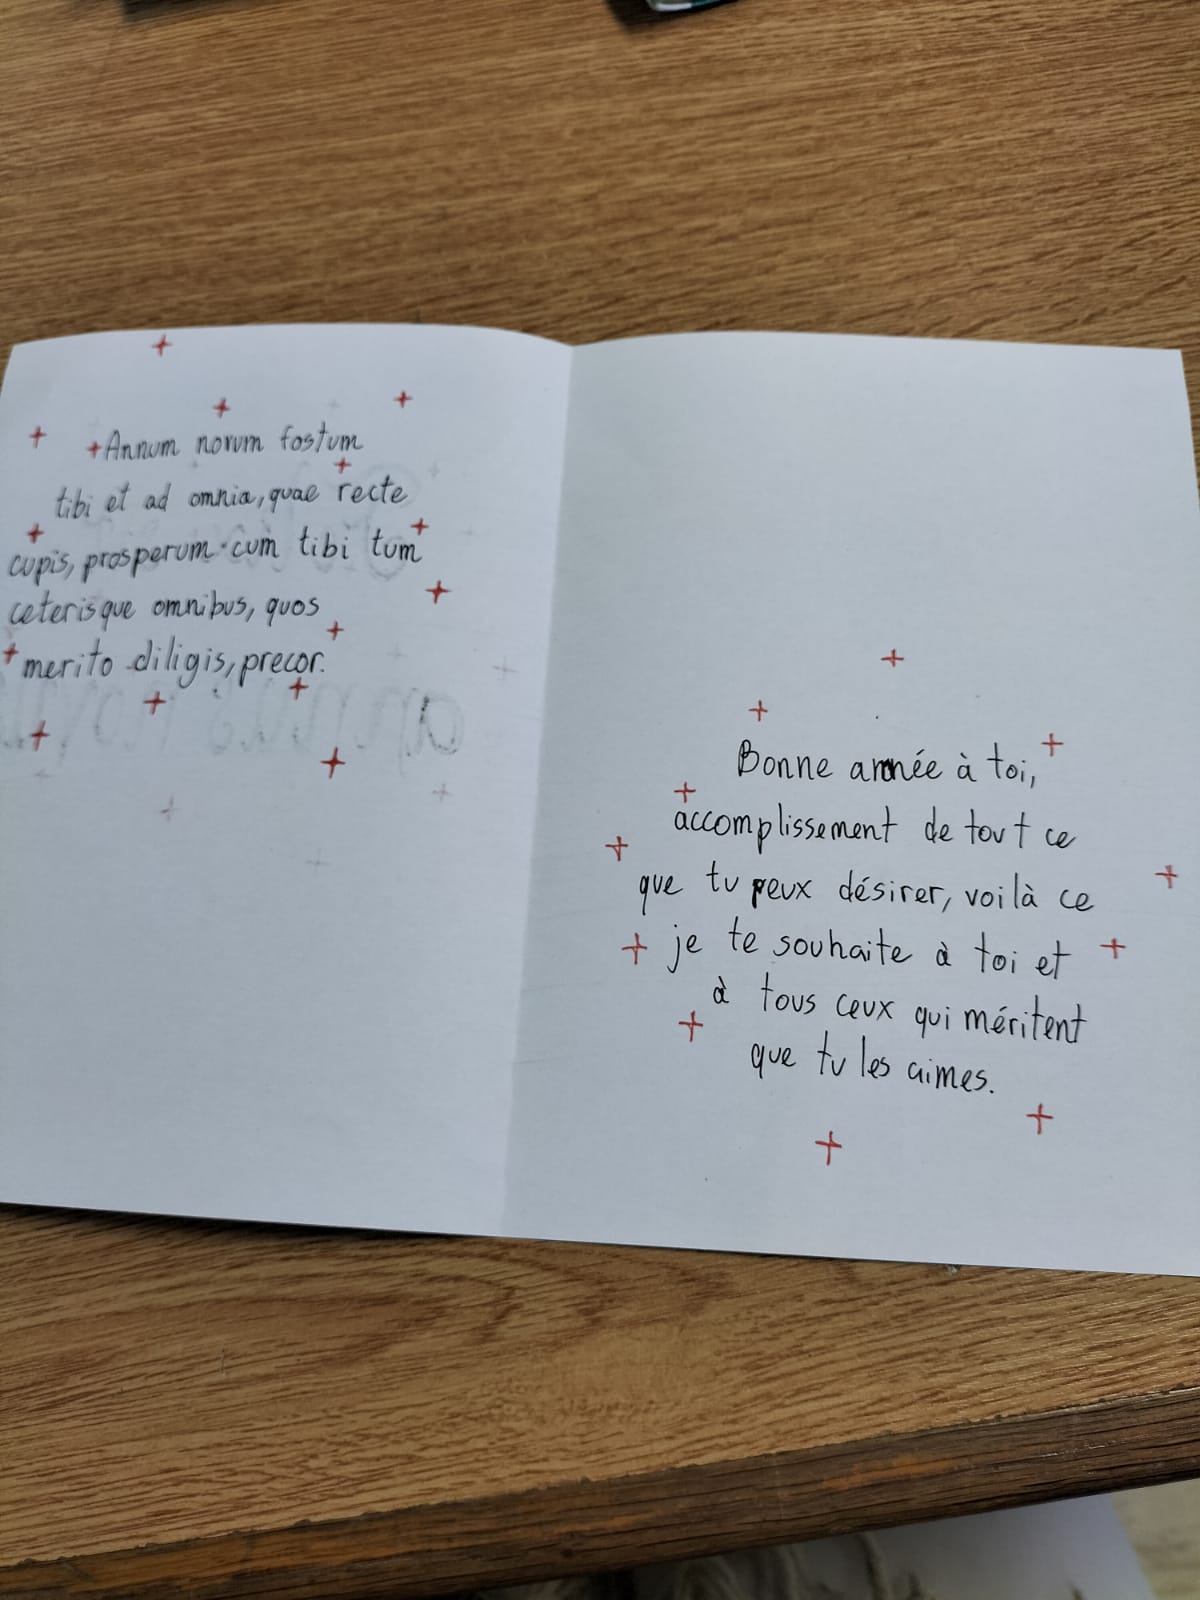 Annum novum fostum
tibi et ad omnia, quae recte
cupis, prosperum cum tibi tum
ceterisque omnibus, quos
merito diligis, precor.
Bonne année à toi,
accomplissement de tout ce
que tu peux désirer, voilà ce
je te souhaite à toi et
à tous ceux qui méritent
que tu les aimes.